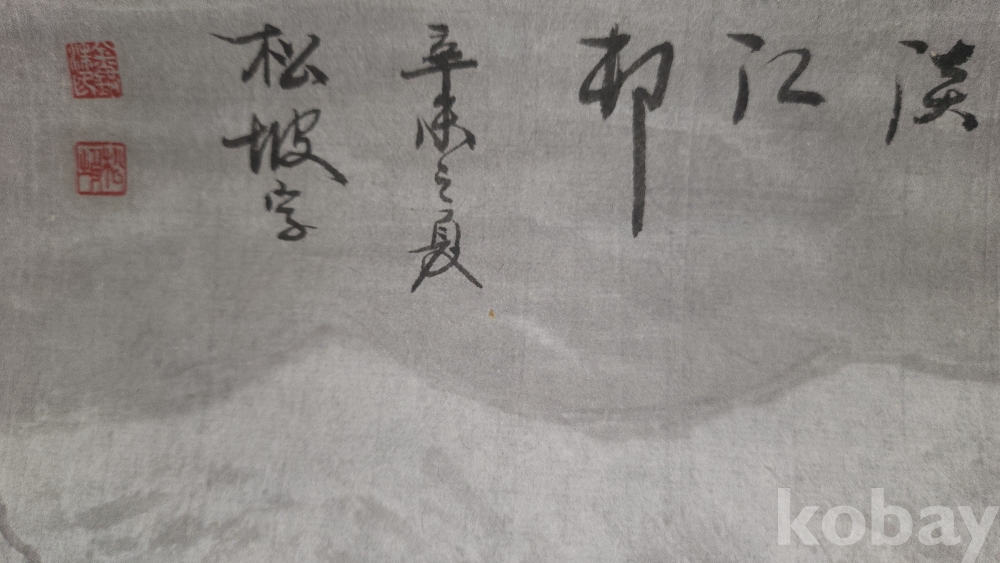 淡江邨
辛未之夏
松坡字
kobay